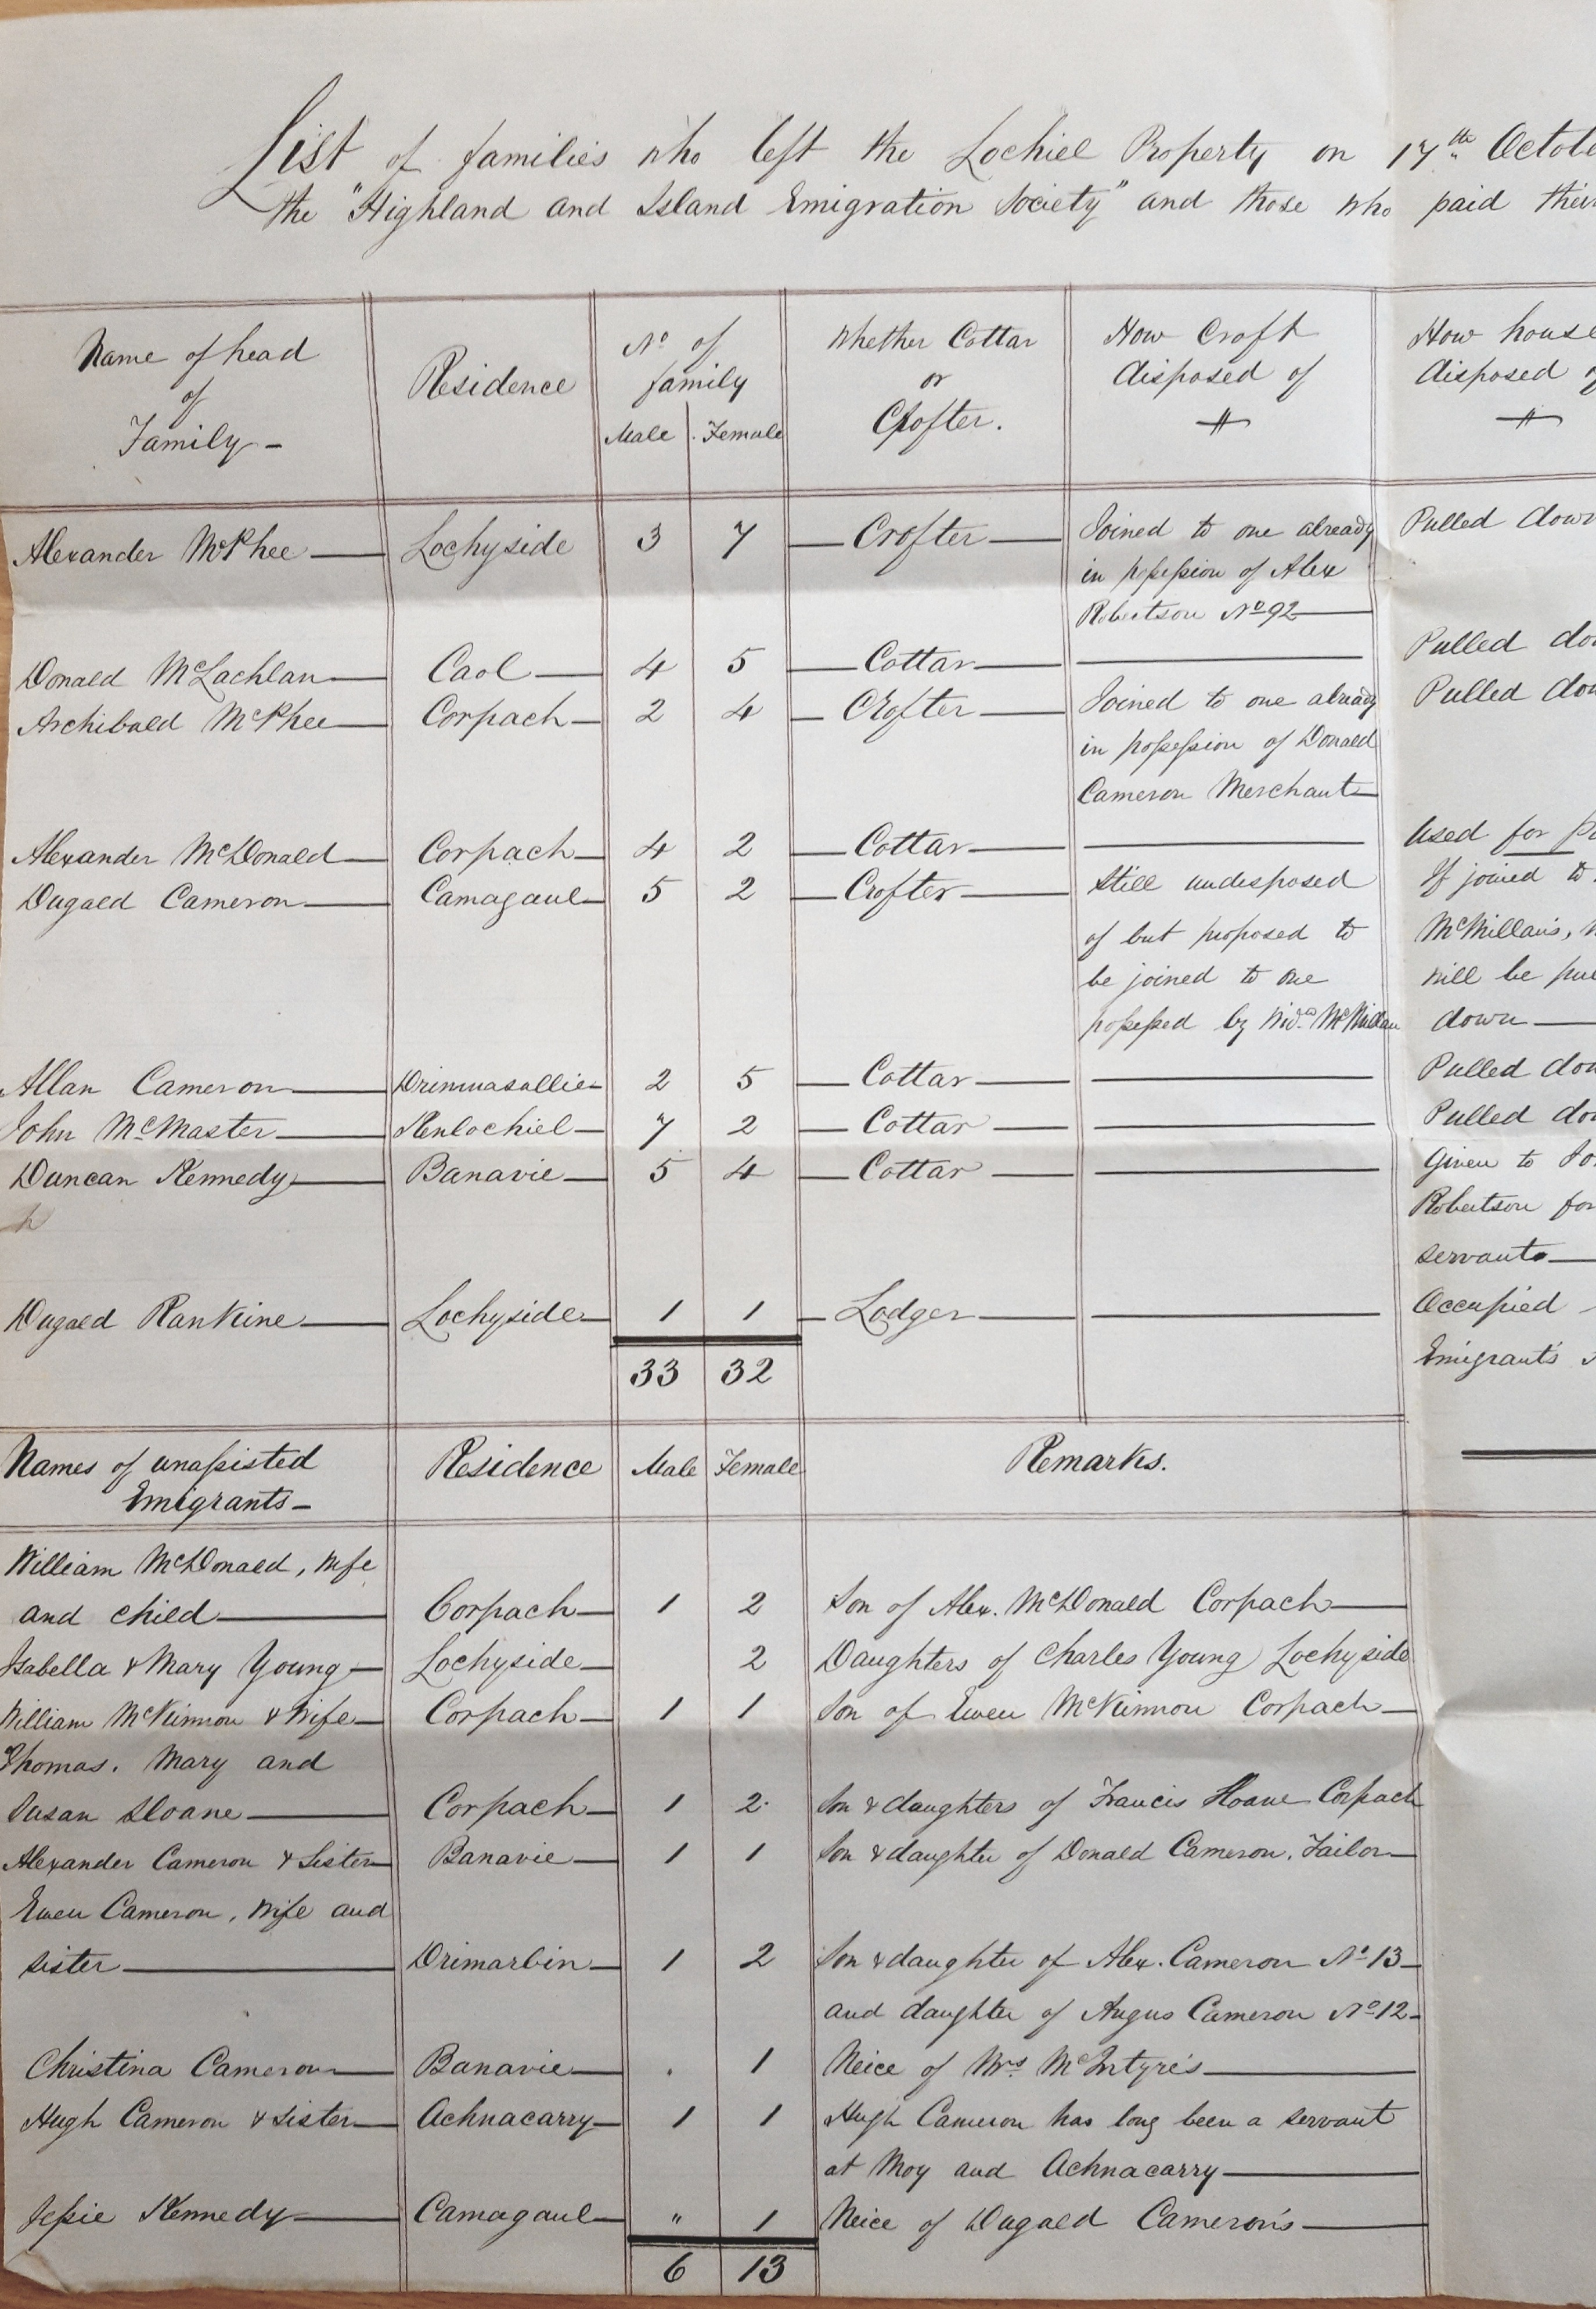 List of families who left the Lochiel Property on 17th Octob
the "Highland and Island Emigration Society" and those who paid their
Name of head of Family - | Residence | No of family Male | Female | Whether Cottar or Crofter. | How Croft disposed of | How house disposed of
Alexander McPhee | Lochyside | 3 | 7 | Crofter | Joined to one already | Pulled down
in possession of Alex
Robertson No 92
Donald McLachlan | Caol | 4 | 5 | Cottar | Pulled do
Archibald McPhee | Corpach | 2 | 4 | Crofter | Joined to one already | Pulled dow
in possession of Donald
Cameron Merchant
Alexander McDonald | Corpach | 4 | 2 | Cottar | Used for
Dugald Cameron | Camagaul | 5 | 2 | Crofter | Still undisposed | If joined to
of but proposed to | McMillan's,
be joined to one | will be pul
possessed by Widw McMillan | down
Allan Cameron | Drimnasallie | 2 | 5 | Cottar | Pulled dow
John McMaster | Kenlochiel | 7 | 2 | Cottar | Pulled do
Duncan Kennedy | Banavie | 5 | 4 | Cottar | Given to Jo
Robertson for
servants
Dugald Rankine | Lochyside | 1 | 1 | Lodger | Occupied
33 | 32 | Emigrants
Names of unassisted | Residence | Male | Female | Remarks.
Emigrants -
William McDonald, wife
and child | Corpach | 1 | 2 | Son of Alex. McDonald Corpach
Isabella & Mary Young | Lochyside | 2 | Daughters of Charles Young Lochyside
William McKinnon & Wife | Corpach | 1 | 1 | Son of Ewen McKinnon Corpach
Thomas. Mary and
Susan Sloane | Corpach | 1 | 2 | Son & daughters of Francis Sloane Corpach
Alexander Cameron & Sister | Banavie | 1 | 1 | Son & daughter of Donald Cameron, Tailor
Ewen Cameron, wife and
sister | Drimarbin | 1 | 2 | Son & daughter of Alex. Cameron No 13
and daughter of Angus Cameron No 12
Christina Cameron | Banavie | . | 1 | Neice of Mrs McIntyre's
Hugh Cameron & Sister | Achnacarry | 1 | 1 | Hugh Cameron has long been a servant
at Moy and Achnacarry
Jessie Kennedy | Camagaul | " | 1 | Neice of Dugald Cameron's
6 | 13